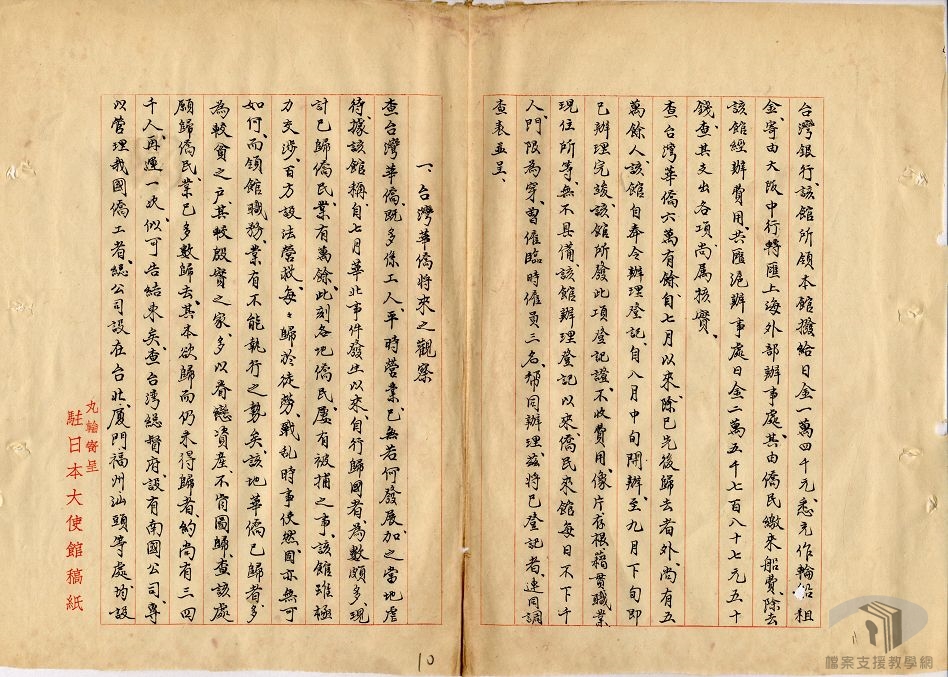 台灣銀行、該館所領本館撥給日金一萬四千元、悉充作輪船租
金、寄由大阪中行轉匯上海外部辦事處、其由僑民繳來船費、除去
該館經辦費用、共匯滬辦事處日金二萬五千七百八十七元五十
錢、查其支出各項、尚屬核實、
查台灣華僑六萬有餘、自七月以來、除已先後歸去者外、尚有五
萬餘人、該館自奉令辦理登記、自八月中旬開辦、至九月下旬即
已辦理完竣、該館所發此項登記證、不收費用、像片存根籍貫職業
現住所等、無不具備、該館辦理登記以來、僑民來館每日不下千
人、門限為穿、曾僱臨時僱員三名、幫同辦理、茲將已登記者、連同調
查表並呈、
一、台灣華僑將來之觀察
查台灣華僑、既多係工人、平時營業、已無若何發展、加之當地虐
待、據該館稱、自七月華北事件發生以來、自行歸國者、為數頗多、現
計已歸僑民、業有萬餘、此刻各地僑民、屢有被捕之事、該館雖極
力交涉、百方設法營救、每々歸於徒勞、戰亂時事使然、固亦無可
如何、而領館職務、業有不能執行之勢矣、該地華僑已歸者、多
為較貧之戶、其較殷實之家、多以眷戀資產、不肯圖歸、查該處
願歸僑民、業已多數歸去、其本欲歸而仍未得歸者、約尚有三四
千人、再運一次、似可告結束矣、查台灣總督府、設有南國公司、專
以管理我國僑工者、總公司設在台北、廈門福州汕頭等處、均設
丸輪寄呈
駐日本大使館稿紙
10
檔案支援教學網